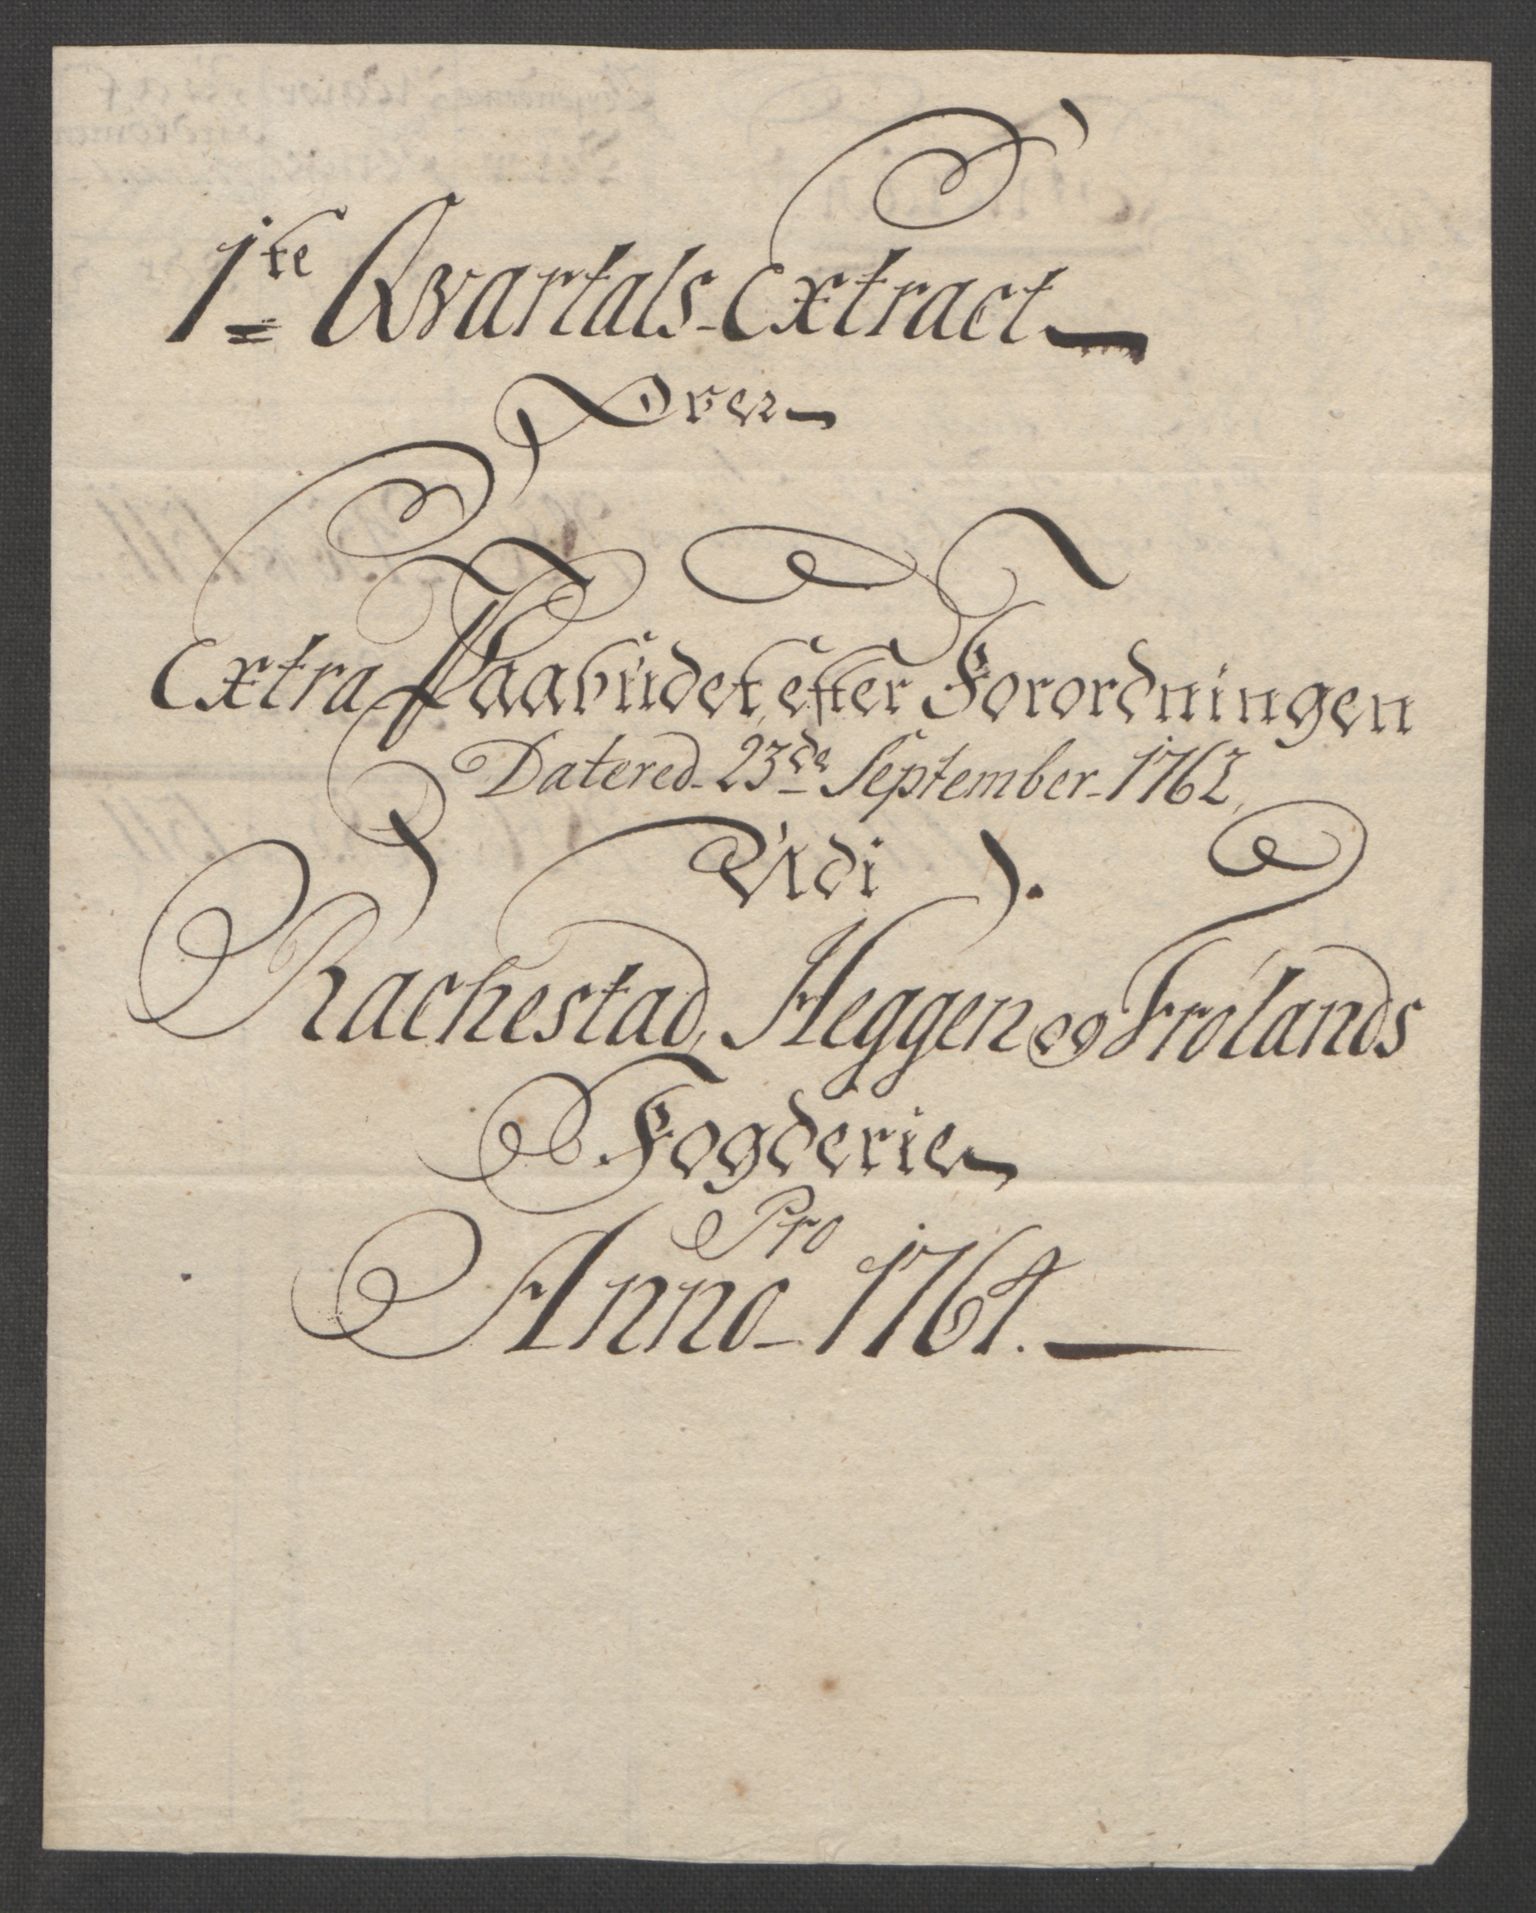 1te Qvartals-Extract
Over
Extra Paabudet, efter Forordningen
Datered 23de September 1762,
Udi
Rachestad, Heggen og Frølands
Fogderie
Pro
Anno 1764.